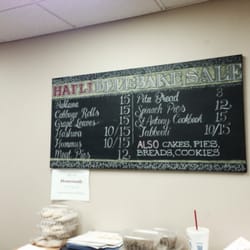 HAFLI LIVE BAKE SALE
Baklawa 15
Cabbage Rolls 15
Grape Leaves 15
Hashwa 10/15
Hommus 10/15
Meat Pies 12
Pita Bread 3
Spinach Pies 12
St. Antony Cookbook 15
Tabbouli 10/15
ALSO CAKES, PIES,
BREADS, COOKIES